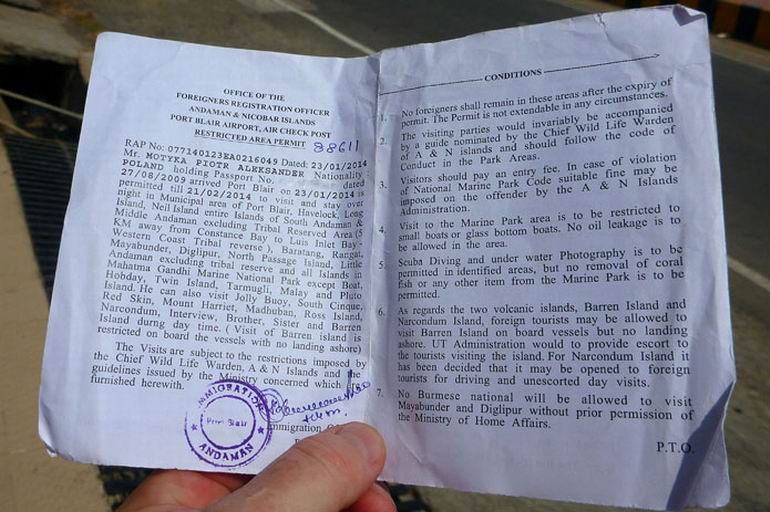 OFFICE OF THE
FOREIGNERS REGISTRATION OFFICER
ANDAMAN & NICOBAR ISLANDS
PORT BLAIR AIRPORT, AIR CHECK POST
RESTRICTED AREA PERMIT 88611
RAP No: 077140123EA0216049 Dated: 23/01/2014
Mr. MOTYKA PIOTR ALEKSANDER Nationality :
POLAND holding Passport No. dated
27/08/2009 arrived Port Blair on 23/01/2014 is
permitted till 21/02/2014 to visit and stay over
night in Municipal area of Port Blair, Havelock, Long
Island, Neil Island entire Islands of South Andaman &
Middle Andaman excluding Tribal Reserved Area (5
KM away from Constance Bay to Luis Inlet Bay -
Western Coast Tribal reverse ), Baratang, Rangat,
Mayabunder, Diglipur, North Passage Island, Little
Andaman excluding tribal reserve and all Islands in
Mahatma Gandhi Marine National Park except Boat,
Hobday, Twin Island, Tarmugli, Malay and Pluto
Island. He can also visit Jolly Buoy, South Cinque,
Red Skin, Mount Harriet, Madhuban, Ross Island,
Narcondum, Interview, Brother, Sister and Barren
Island durng day time. ( Visit of Barren island is
restricted on board the vessels with no landing ashore)
The Visits are subject to the restrictions imposed by
the Chief Wild Life Warden, A & N Islands and the
guidelines issued by the Ministry concerned which
furnished herewith.
IMMIGRATION
Port Blair
ANDAMAN
Immigration
CONDITIONS
1. No foreigners shall remain in these areas after the expiry of
permit. The Permit is not extendable in any circumstances,
2. The visiting parties would invariably be accompanied
by a guide nominated by the Chief Wild Life Warden
of A & N islands and should follow the code of
Conduct in the Park Areas.
3. Visitors should pay an entry fee. In case of violation
of National Marine Park Code suitable fine may be
imposed on the offender by the A & N Islands
Administration.
4. Visit to the Marine Park area is to be restricted to
small boats or glass bottom boats. No oil leakage is to
be allowed in the area.
5. Scuba Diving and under water Photography is to be
permitted in identified areas, but no removal of coral
fish or any other item from the Marine Park is to be
permitted.
6. As regards the two volcanic islands, Barren Island and
Narcondum Island, foreign tourists may be allowed to
visit Barren Island on board vessels but no landing
ashore. UT Administration would provide escort to
the tourists visiting the island. For Narcondum Island it
has been decided that it may be opened to foreign
tourists for driving and unescorted day visits.
7. No Burmese national will be allowed to visit
Mayabunder and Diglipur without prior permission of
the Ministry of Home Affairs.
P.T.O.